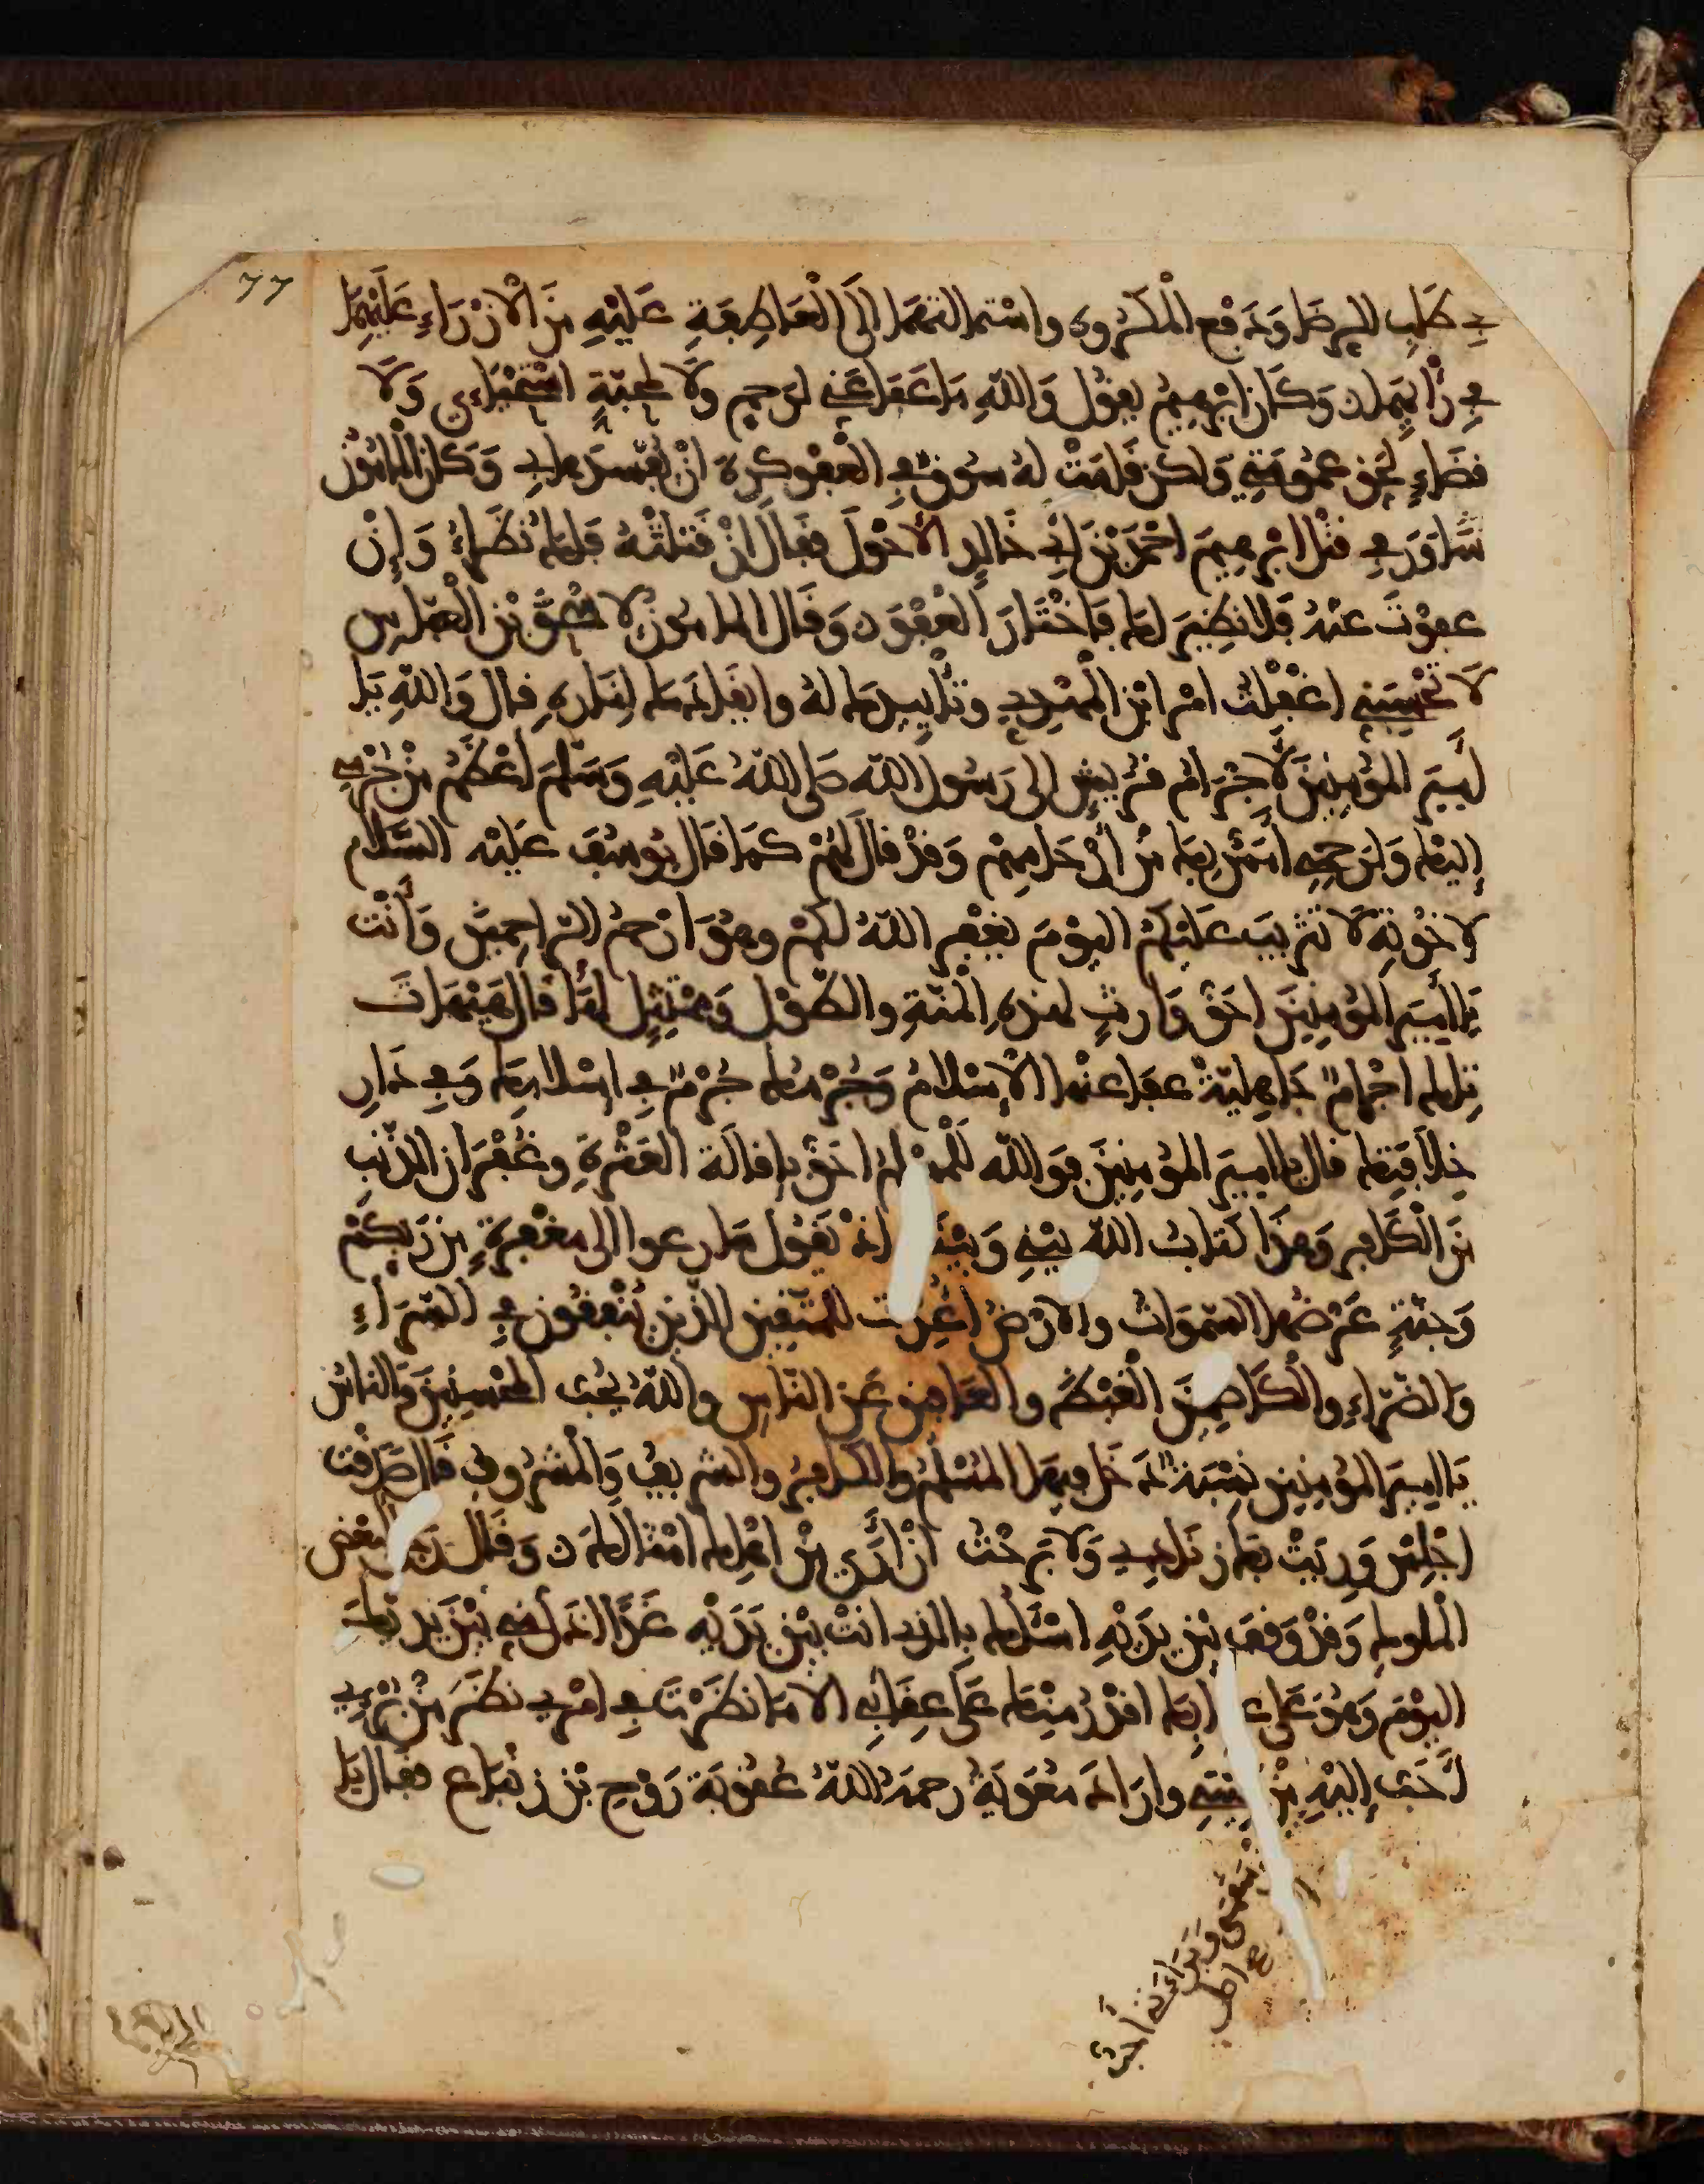 77
في طلب الرضا ودفع المكروه واستمالتهما الى العاطفة عليه من الازراء عليهما
في رايهما وكان ابرهيم يقول والله ما عفا عني لرحم ولا لمحبة استحيائي ولا
قضاء لحق عمومتي ولكن قامت له سوق في العفو كره ان يفسدها بي وكان المامون
شاور في قتل ابرهيم احمد بن ابي خالد الاحول فقال ان قتلته فلك نظراء وان
عفوت عنه فلا نظير لك فاختار العفو وقال المامون لاسحق بن العباس
لا تحسبني اغفلت امر ابن المهدي وتاييدك له وايقادك لناره فقال والله يا
امير المومنين لاجرام قريش الى رسول الله صلى الله عليه وسلم اعظم من جرمي
اليك ولرحمي امس بك من ارحامهم وقد قال لهم كما قال يوسف عليه السلام
لاخوته لا تثريب عليكم اليوم يغفر الله لكم وهو ارحم الراحمين وانت
يا امير المومنين احق وارث لهذه المنة والطول وممتثل لها قال هيهات
تلك اجرام جاهلية عفا عنها الاسلام وجرمك جرم في اسلامك وفي دار
خلافتك قال يا امير المومنين فوالله للمسلم احق باقالة العثرة وغفران الذنب
من الكافر وهذا كتاب الله بيني وبينك اذ يقول سارعوا الى مغفرة من ربكم
وجنة عرضها السموات والارض اعدت للمتقين الذين ينفقون في السراء
والضراء والكاظمين الغيظ والعافين عن الناس والله يحب المحسنين والناس
يا امير المومنين نسبة دخل فيها المسلم والكافر والشريف والمشروف قال صدقت
اجلس وريت بك زنادي ولا برحت ان ارى من اهلك امثالك وقال رجل لبعض
الملوك وقد وقف بين يديه اسئلك بالذي انت بين يديه غدا اذل مني بين يديك
اليوم وهو على عقابك اقدر منك على عقابي الا ما نظرت في امري نظر من برئي
احب اليه من واراد معوية رحمه الله عقوبة روح بن زنباع فقال يا
سقمي وبراءتي احب